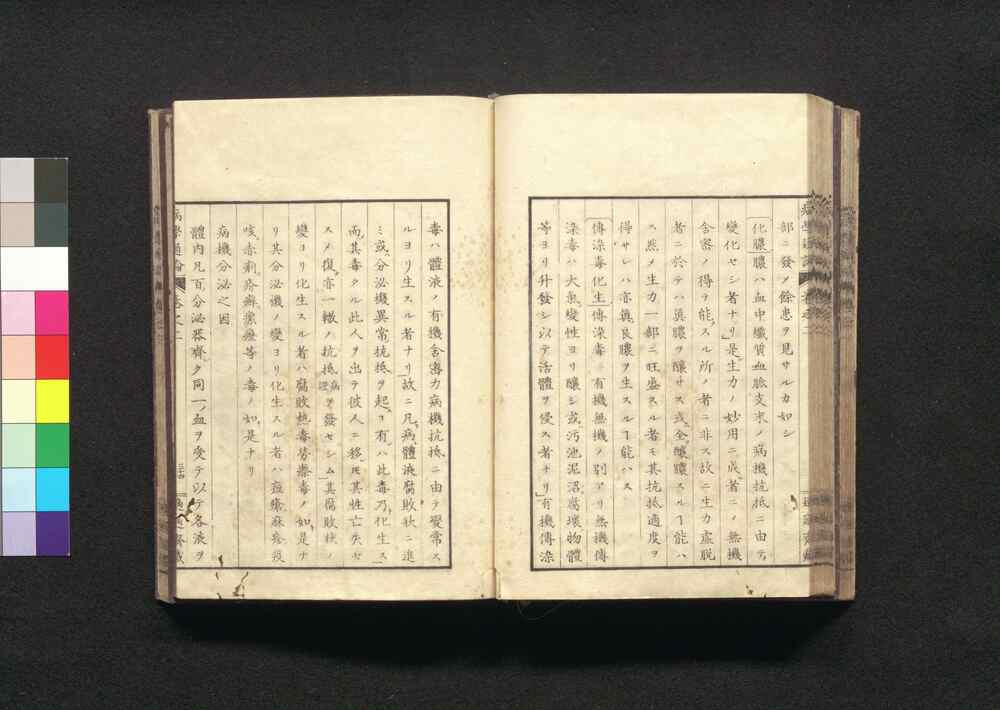 部ニ發メ餘患ヲ見サルカ如シ
化膿膿ハ血中纖質血脈支末ノ病機抗抵ニ由テ
變化セシ者ナリ是生力ノ妙用ニ成者ニノ無機
舎密ノ得テ能スル所ノ者ニ非ス故ニ生力虛脱
者ニ於テハ眞膿ヲ釀サス或全釀膿スルヿ能ハ
ス然メ生力一部ニ旺盛スル者モ其抗抵適度ヲ
得サレハ亦眞良膿ヲ生スルヿ能ハス
傳染毒化生傳染毒ニ有機無機ノ別アリ無機傳
染毒ハ大氣變性ヨリ釀シ或汚池泥沼腐壞物體
等ヨリ升發シ以テ活體ヲ侵ス者ナリ有機傳染
毒ハ體液ノ有機舎密力病機抗抵ニ由テ變常ス
ルヨリ生スル者ナリ故ニ凡病體液腐敗狀ニ進
ミ或分泌機異常抗抵ヲ起ヿ有ハ此毒乃化生ス
而其毒タル此人ヲ出テ彼人ニ移モ其性亡失セ
スメ復亦一轍ノ抗抵病證ヲ發セシム其腐敗狀ノ
變ヨリ化生スル者ハ腐敗熱毒勞瘵毒ノ如是ナ
リ其分泌機ノ變ヨリ化生スル者ハ痘瘡麻疹疫
咳赤痢疥癬黴瘡等ノ毒ノ如是ナリ
病機分泌之因
體内凡百分泌器齊ク同一ノ血ヲ受テ以テ各液ヲ
病學通論
卷之二